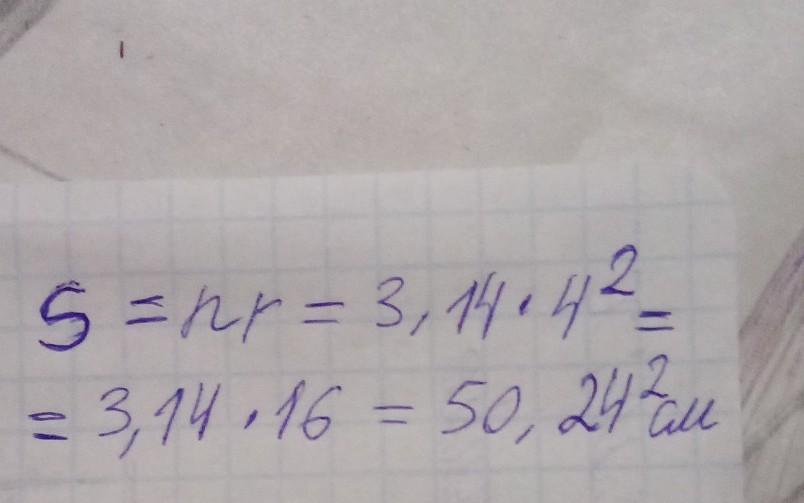 S = пr = 3,14 · 4² =
= 3,14 · 16 = 50,24² см